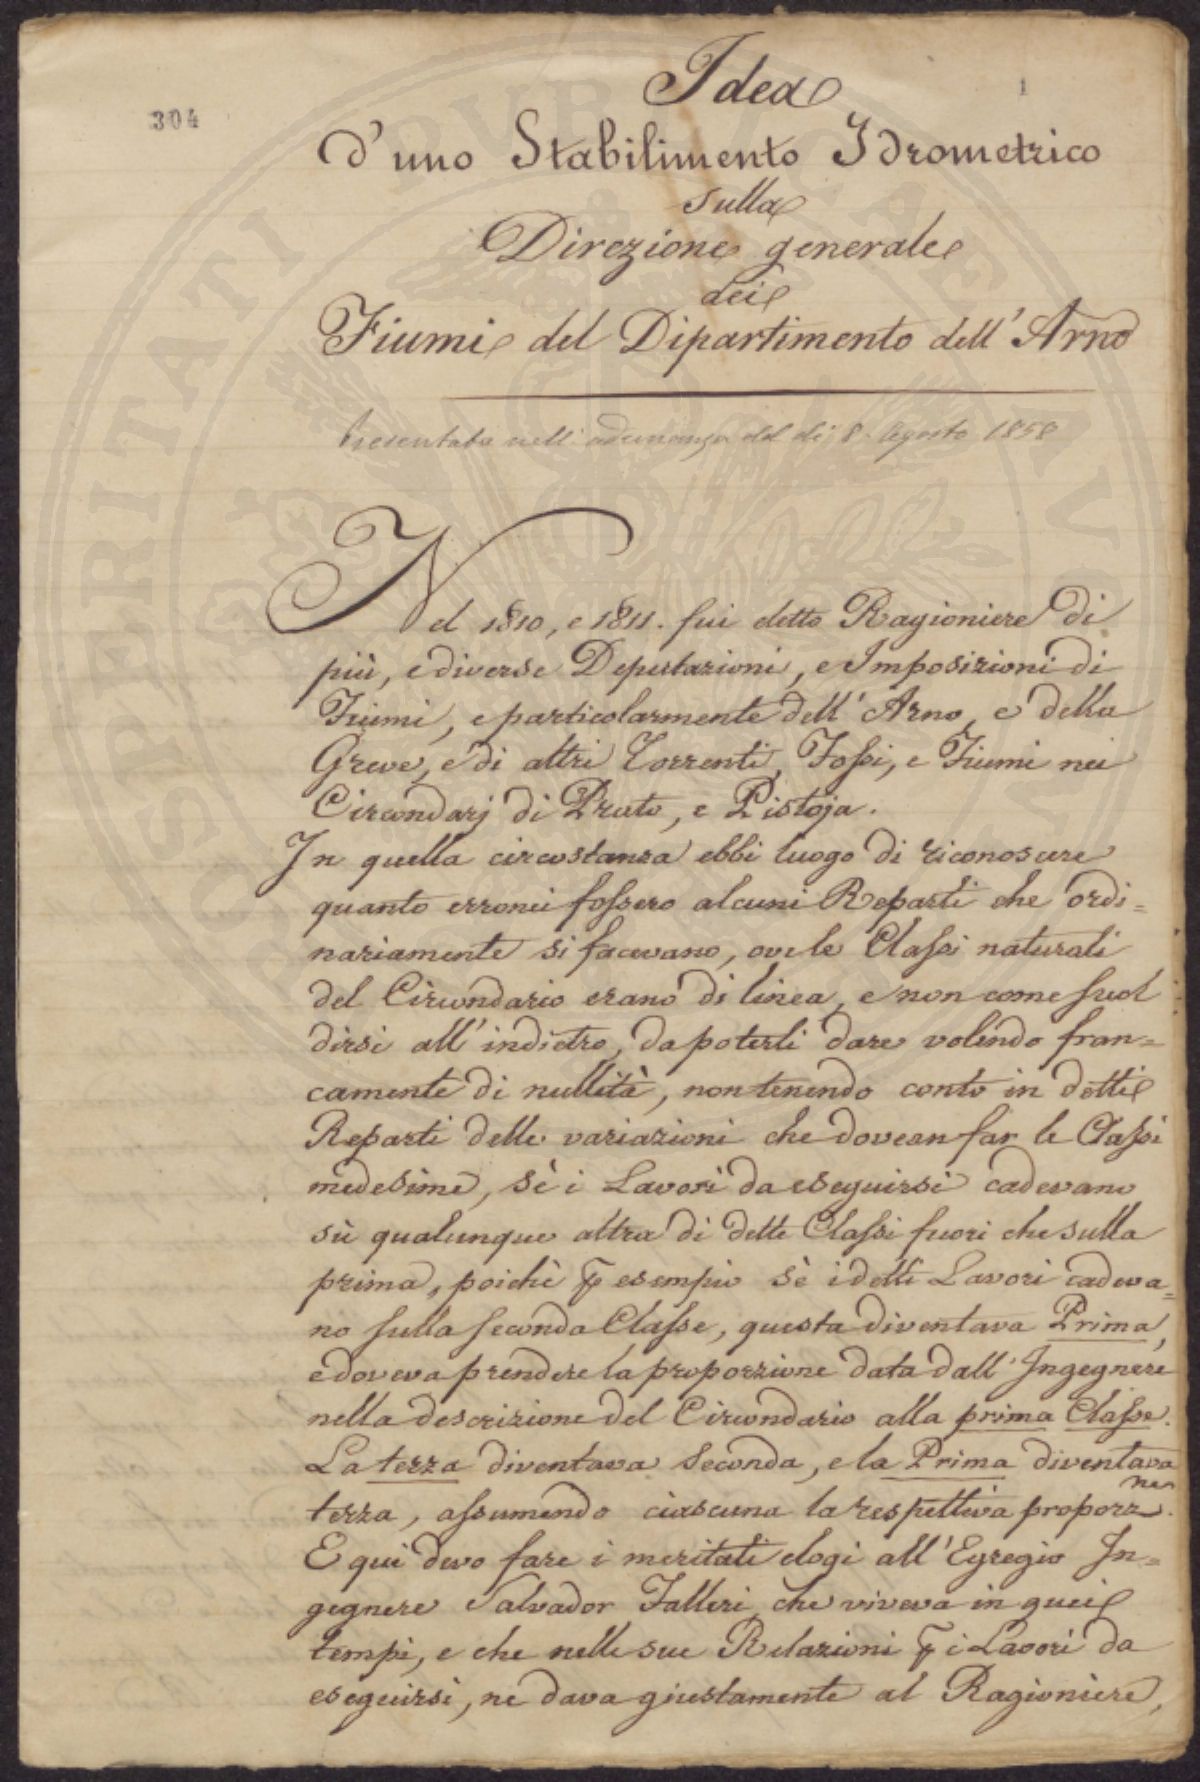 304
1
Idea
d'uno Stabilimento Idrometrico
sulla
Direzione generale
dei
Fiumi del Dipartimento dell'Arno
Presentata nell'adunanza del dì 8. Agosto 1858
Nel 1810, e 1811. fui detto Ragioniere di
più, e diverse Deputazioni, e Imposizioni di
Fiumi, e particolarmente dell'Arno, e della
Greve, e di altri Torrenti, Fossi, e Fiumi nei
Circondarj di Prato, e Pistoja.
In quella circostanza ebbi luogo di riconoscere
quanto erronei fossero alcuni Reparti che ordi=
nariamente si facevano, ove le Classi naturali
del Circondario erano di linea, e non come suol
dirsi all'indietro, da poterli dare volendo fran=
camente di nullità, non tenendo conto in detti
Reparti delle variazioni che dovean far le Classi
medesime, sè i Lavori da eseguirsi cadevano
sù qualunque altra di dette Classi fuori che sulla
prima, poichè p esempio sè i detti Lavori cadeva=
no sulla seconda Classe, questa diventava Prima,
e doveva prendere la proporzione data dall'Ingegnere
nella descrizione del Circondario alla prima Classe.
La terza diventava seconda, e la Prima diventava
terza, assumendo ciascuna la respettiva proporz.ne
E qui devo fare i meritati elogi all'Egregio In=
gegnere Salvador Falleri, che viveva in quei
tempi, e che nelle sue Relazioni p i Lavori da
eseguirsi, ne dava giustamente al Ragioniere,
PROSPERITATI PUBLICAE